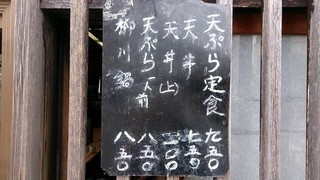 天ぷら定食 九五〇
天丼 七五〇
天丼(上) 一一〇〇
天ぷら一人前 八五〇
柳川鍋 八五〇